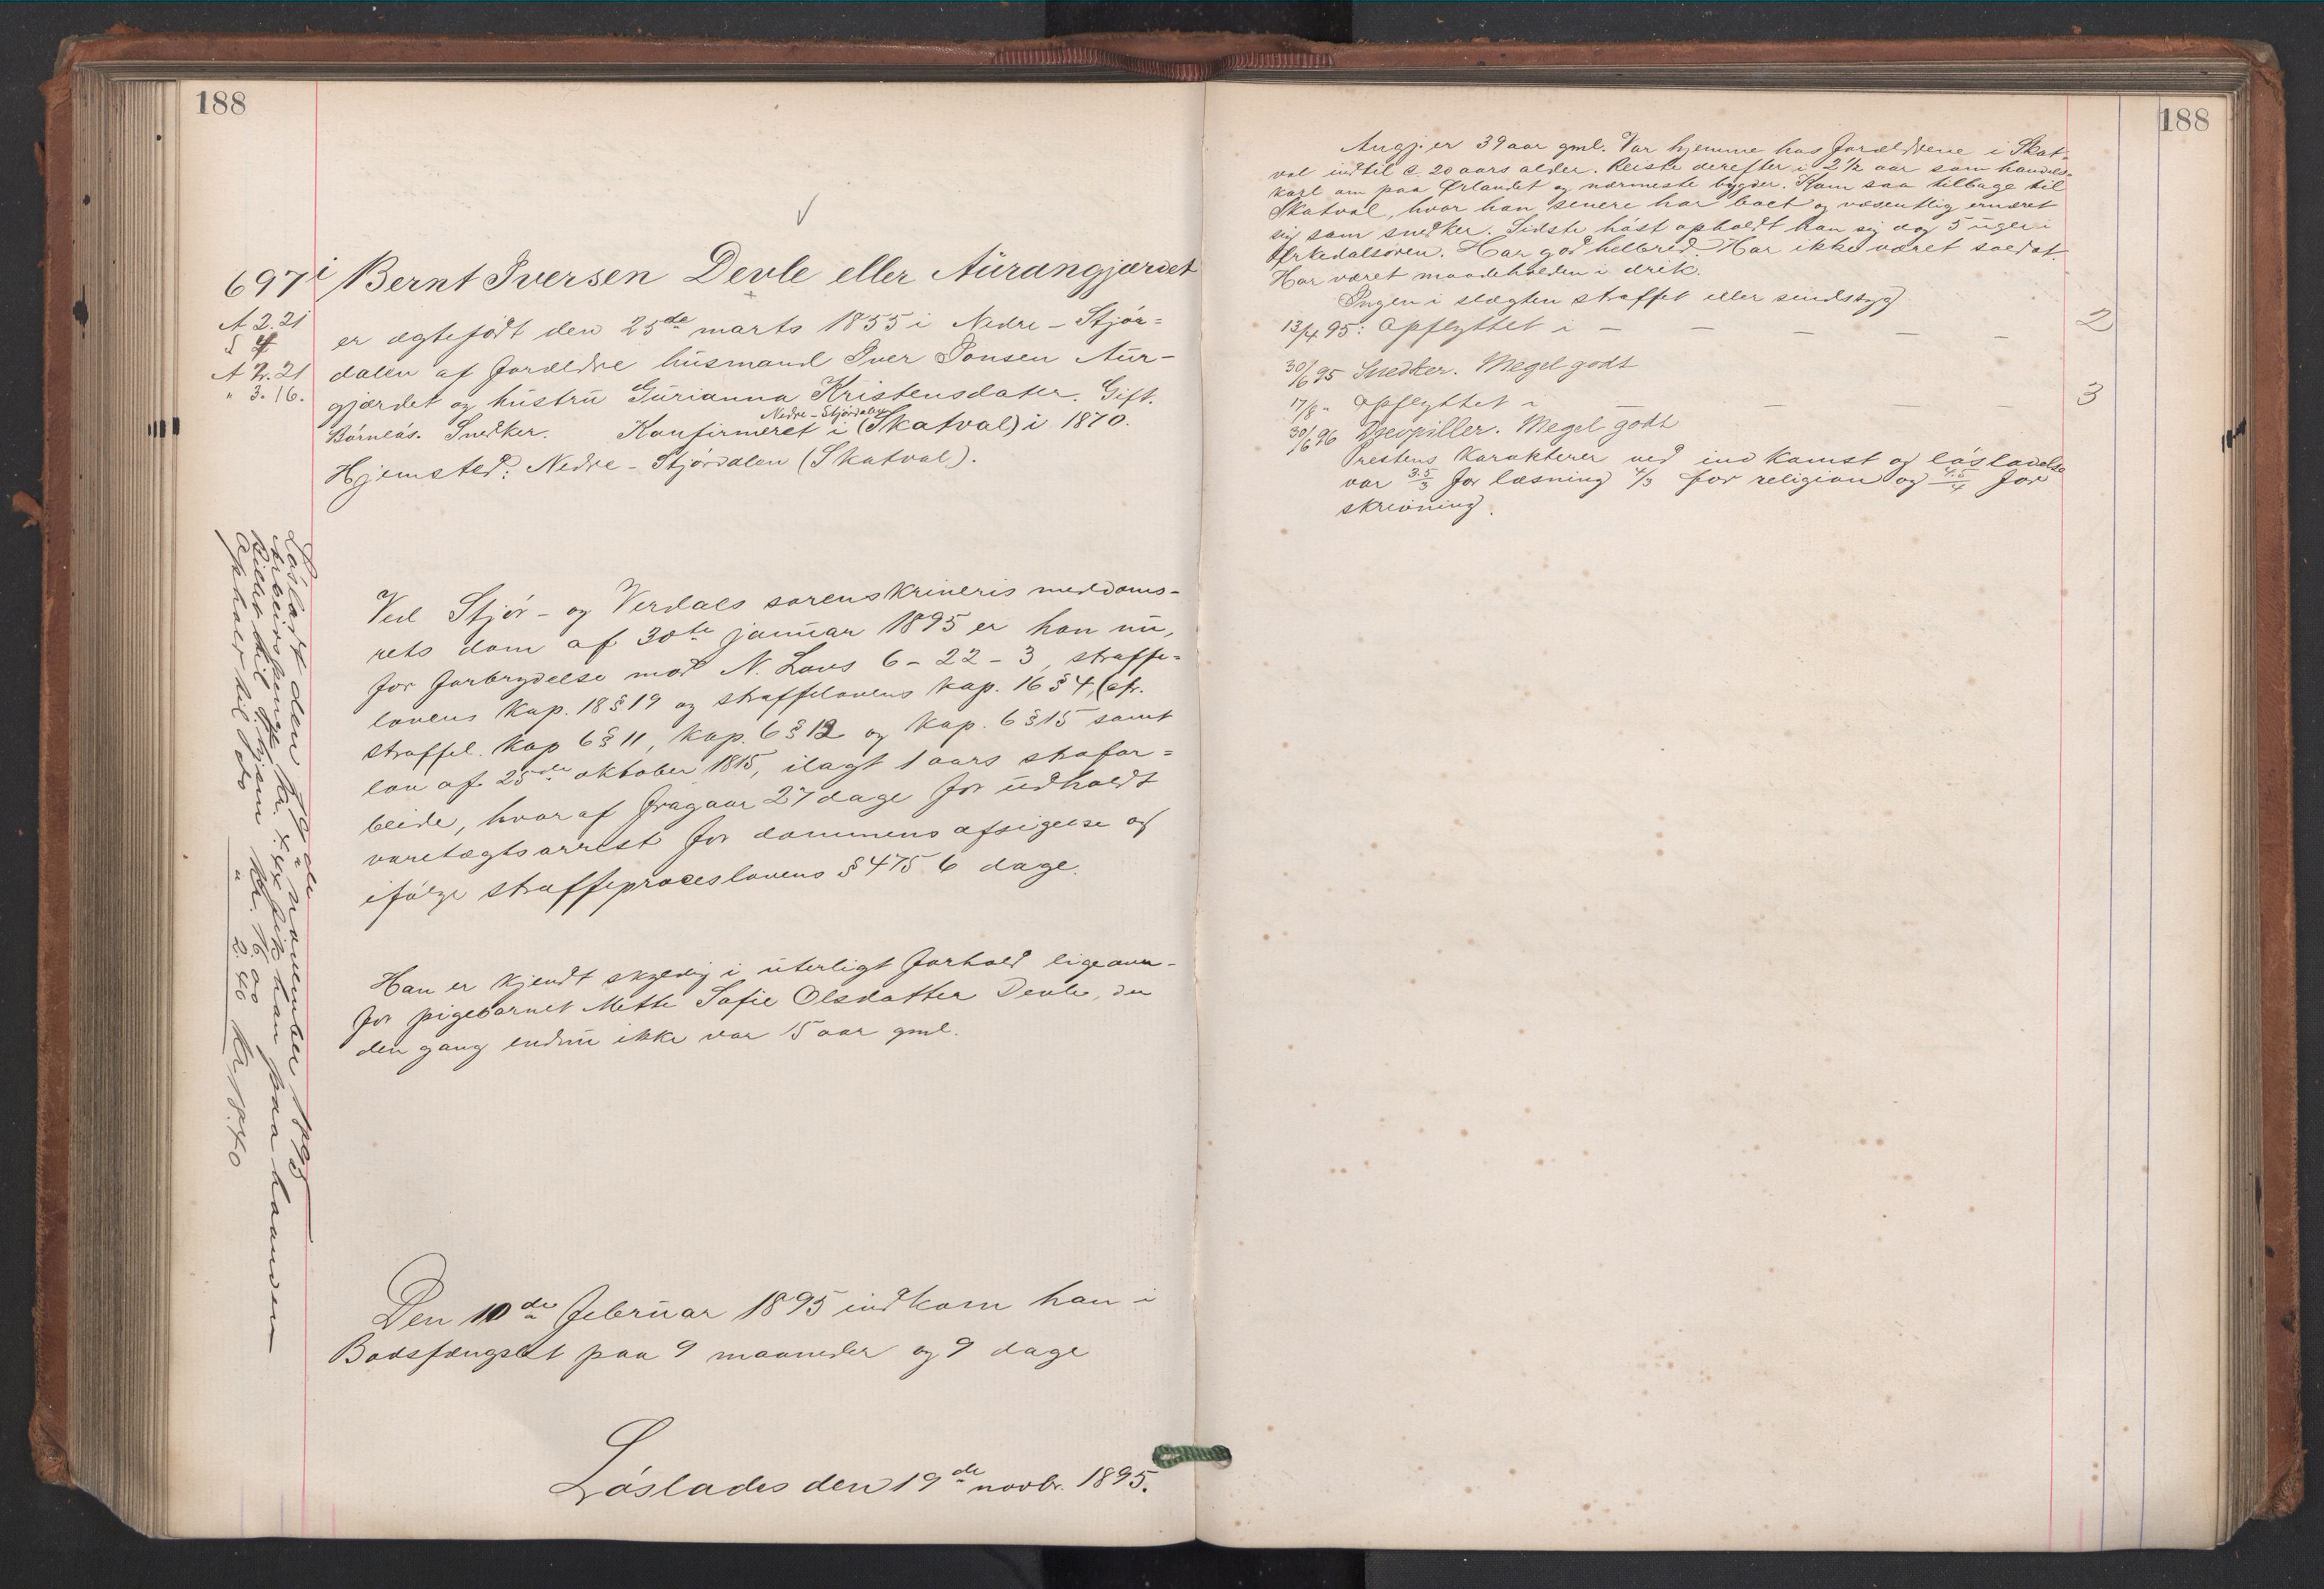 188
697i Bernt Iversen Devle eller Aurangjærdet
A 2.21
A 2.21
" 3.16.
er ægtefødt den 25de marts 1855 i Nedre-Stjør=
dalen af forældre husmand Iver Jonsen Aur-
gjærdet og hustru Gurianna Kristensdater. Gift.
Børneløs. Snedker. Konfirmeret i Nedre-Stjørdalen (Skatval) i 1870.
Hjemsted: Nedre-Stjørdalen (Skatval).
Ved Stjør- og Verdals sorenskriveris meddoms-
rets dom af 30te januar 1895 er han nu,
for forbrydelse mod N. Lovs 6-22-3, straffe=
lovens kap. 18 § 19 og straffelovens kap. 16 § 4, (cfr.
straffel. kap 6 § 11, kap. 6 § 12 og kap. 6 § 15 samt
lov af 25de oktober 1815, ilagt 1 aars strafar=
beide, hvoraf fragaar 27 dage for udholdt
varetægtsarrest før dommens afsigelse og
ifølge straffeproceslovens § 475 6 dage.
Han er kjendt skyldig i uterligt forhold ligeoven-
for pigebarnet Mette Sofie Olsdatter Devle, der
den gang endnu ikke var 15 aar gml.
Den 10de februar 1895 indkom han i
Bodsfængslet paa 9 maaneder og 9 dage
Løslades den 19de novbr. 1895.
Løsladt den 19de november 1895
Arbeidspenge kr. fik han paa haanden
Billet til hjem kr. 16.00
Ophold til do " 2.40 kr 18.40
188
Angj. er 39 aar gml. Var hjemme hos forældrene i Skat-
val indtil c. 20 aars alder. Reiste derefter i 2 1/2 aar som handels-
karl om paa Ørlandet og nærmeste bygder. Kom saa tilbage til
Skatval, hvor han senere har boet og væsentlig ernæret
sig som snedker. Sidste høst opholdt han sig dog 5 uger i
Orkedalsøren. Har god helbred. Har ikke været soldat.
Har været maadeholden i drik.
Ingen i slægten straffet eller sindssyg
13/4 95: Opflyttet i — — — — — 2
30/6 95 Snedker. Meget godt
17/8 " Opflyttet i — — — — 3
30/6 96 Meget godt
Prestens karakterer ved indkomst og løsladelse
var 3.5/3 for læsning 4/3 for religion og 4.5/4 for
skrivning.